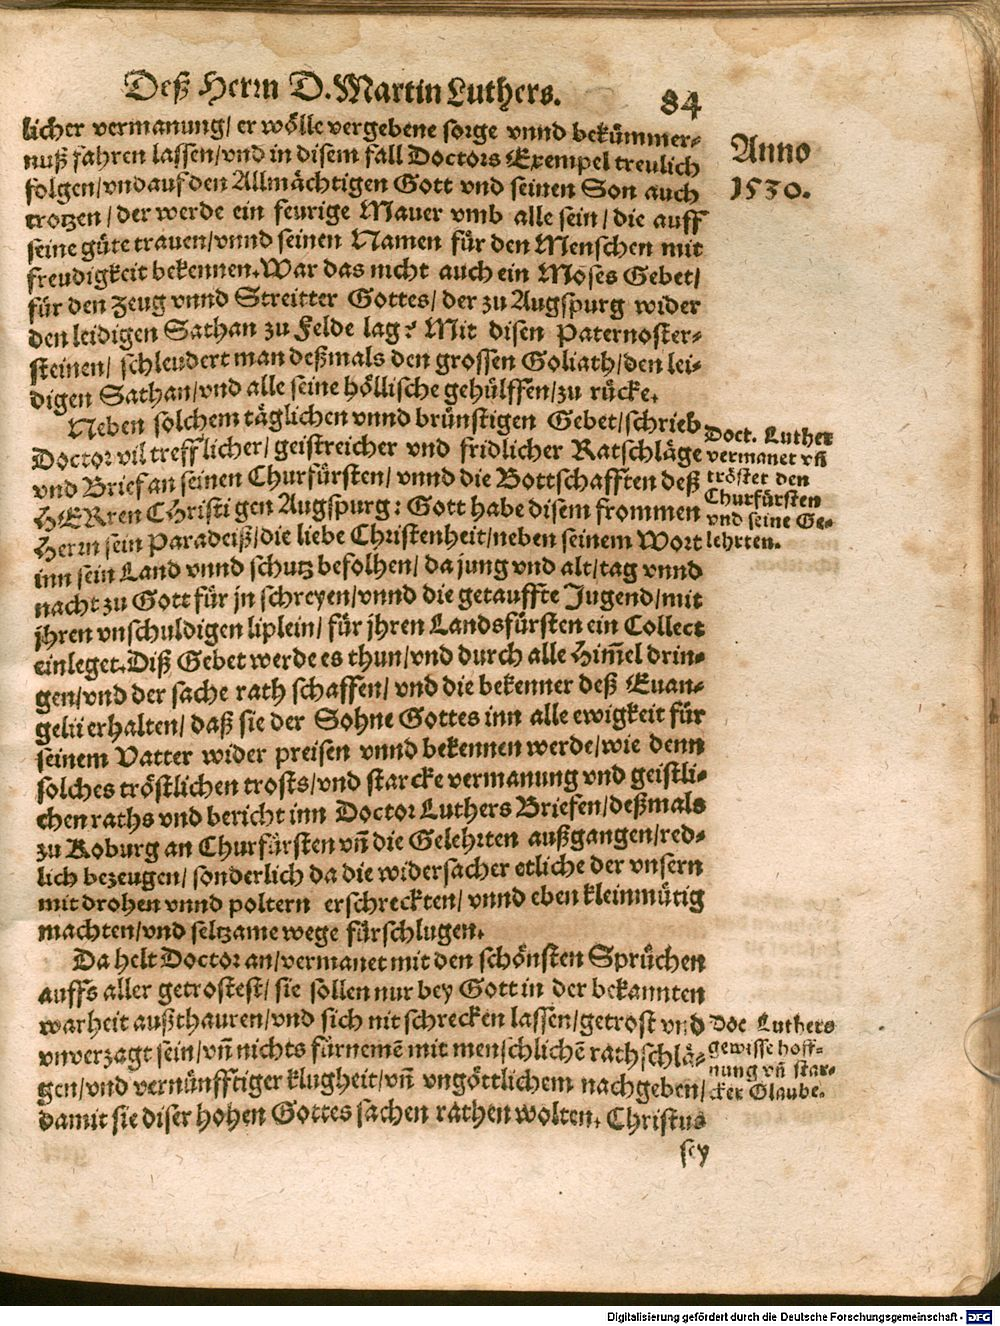 Deß Herrn D. Martin Luthers.
84
licher vermanung/ er wölle vergebene sorge vnnd bekümmer-
nuß fahren lassen/vnd in disem fall Doctors Exempel treulich
folgen/vnd auf den Allmächtigen Gott vnd seinen Son auch
trotzen/ der werde ein feurige Mauer vmb alle sein/ die auff
seine güte trauen/vnnd seinen Namen für den Menschen mit
freudigkeit bekennen. War das nicht auch ein Moses Gebet/
für den Zeug vnnd Streitter Gottes/ der zu Augspurg wider
den leidigen Sathan zu Felde lag? Mit disen Paternoster-
steinen/ schleudert man deßmals den grossen Goliath/den lei-
digen Sathan/vnd alle seine höllische gehülffen/zu rücke.
Neben solchem täglichen vnnd brünstigen Gebet/schrieb
Doctor vil trefflicher/ geistreicher vnd fridlicher Ratschläge
vnd Brief an seinen Churfürsten/ vnnd die Bottschafften deß
HERren CHristi gen Augspurg: Gott habe disem frommen
Herrn sein Paradeiß/die liebe Christenheit/neben seinem Wort
inn sein Land vnnd schutz befolhen/ da jung vnd alt/tag vnnd
nacht zu Gott für jn schreyen/vnnd die getauffte Jugend/mit
jhren vnschuldigen liplein/ für jhren Landsfürsten ein Collect
einleget. Diß Gebet werde es thun/vnd durch alle Him̄el drin-
gen/vnd der sache rath schaffen/ vnd die bekenner deß Euan-
gelii erhalten/ daß sie der Sohne Gottes inn alle ewigkeit für
seinem Vatter wider preisen vnnd bekennen werde/wie denn
solches tröstlichen trosts/vnd starcke vermanung vnd geistli-
chen raths vnd bericht inn Doctor Luthers Briefen/deßmals
zu Koburg an Churfürsten vn̄ die Gelehrten außgangen/red-
lich bezeugen/ sonderlich da die widersacher etliche der vnsern
mit drohen vnnd poltern erschreckten/ vnnd eben kleinmütig
machten/vnd seltzame wege fürschlugen.
Da helt Doctor an/vermanet mit den schönsten Sprüchen
auffs aller getrostest/ sie sollen nur bey Gott in der bekannten
warheit außthauren/vnd sich nit schrecken lassen/getrost vnd
vnverzagt sein/vn̄ nichts fürnemē mit menschlichē rathschlä-
gen/vnd vernünfftiger klugheit/vn̄ vngöttlichem nachgeben/
damit sie diser hohen Gottes sachen rathen wolten. Christus
sey
Anno
1530.
Doct. Luther
vermanet vn̄
tröstet den
Churfürsten
vnd seine Ge-
lehrten.
Doc Luthers
gewisse hoff-
nung vn̄ star-
cker Glaube.
Digitalisierung gefördert durch die Deutsche Forschungsgemeinschaft - DFG